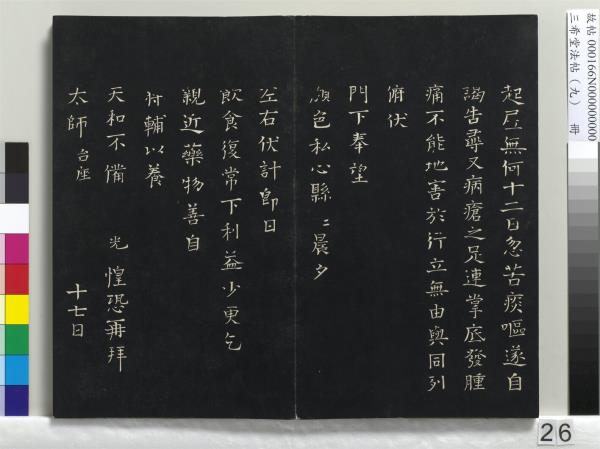 起居無何十二日忽苦痰嘔遂自
謁告尋又病瘡之足連掌底發腫
痛不能地害於行立無由與同列
俯伏
門下奉望
顏色私心縣〻晨夕
左右伏計即日
飲食復常下利益少更乞
親近藥物善自
將輔以養
天和不備 光 惶恐再拜
太師 台座
十七日
故帖 000166N000000000
三希堂法帖(九) 冊
26